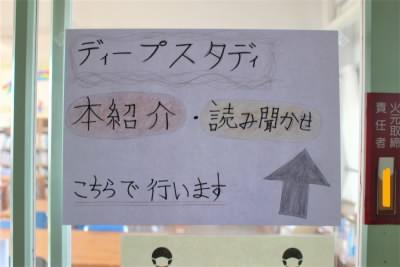 ディープスタディ
本紹介・読み聞かせ
こちらで行います
火元取締
責任者